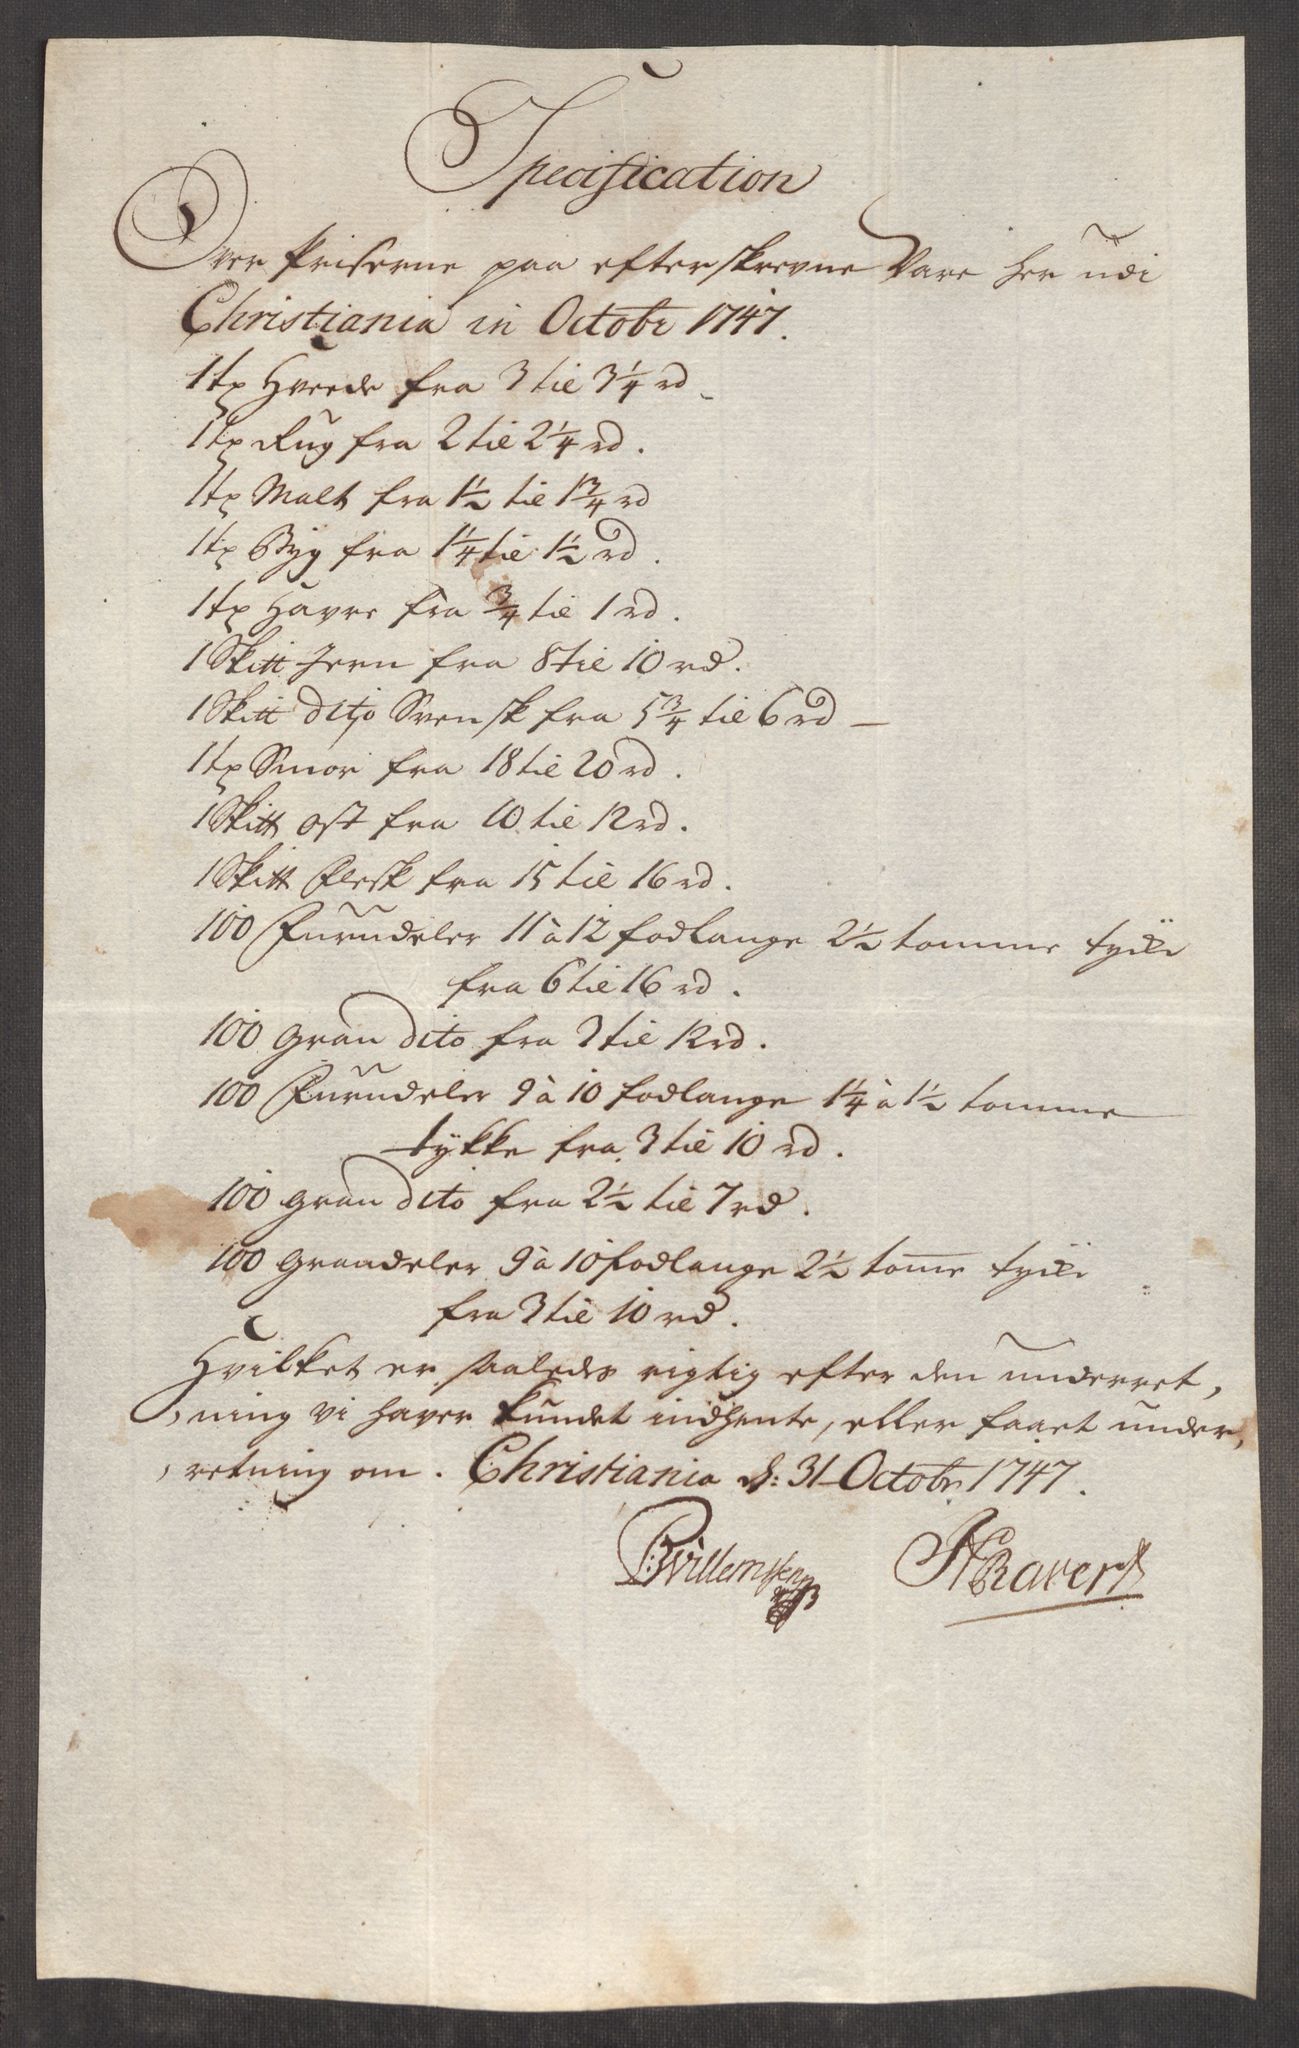 Specification
Over Priserne paa efterskrevne Vare her udi
Christiania in Octobr 1747.
1 tp Hveede fra 3 til 3 1/4 rd
1 tp Rug fra 2 til 2 1/4 rd.
1 tp Malt fra 1 1/2 til 1 3/4 rd
1 tp Byg fra 1 1/4 til 1 1/2 rd.
1 tp Havre fra 3/4 til 1 rd.
1 Skitt Jern fra 8 til 10 rd.
1 Skitt dito Svensk fra 5 3/4 til 6 rd —
1 tp Smør fra 18 til 20 rd.
1 Skitt ost fra 10 til 12 rd.
1 Skitt Flesk fra 15 til 16 rd.
100 Furudeler 11 à 12 fodlange 2 1/2 tomme tycke
fra 6 til 16 rd.
100 gran dito fra 3 til 12 rd.
100 Furudeler 9 à 10 fodlange 1 1/4 à 1 1/2 tomme
tykke fra 3 til 10 rd.
100 gran dito fra 2 1/2 til 7 rd.
100 Grandeler 9 à 10 fodlange 2 1/2 tome tycke
fra 3 til 10 rd.
Hvilket er saaledes rigtig efter den underret,
ning vi haver kundet indhente, eller faaet under,
retning om. Christiania d: 31 Octobr 1747.
Willemssen Ravert